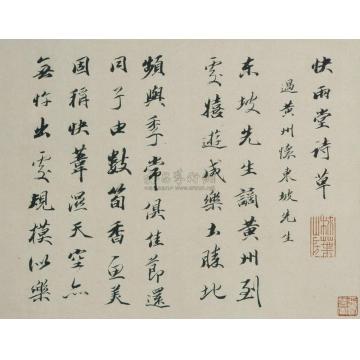 快雨堂詩草
過黃州懷東坡先生
東坡先生謫黃州到
處嬉遊成樂土勝地
頻與季常俱佳節還
同子由數筍香魚美
固稱快葦濕天空亦
無妨出處規模似樂